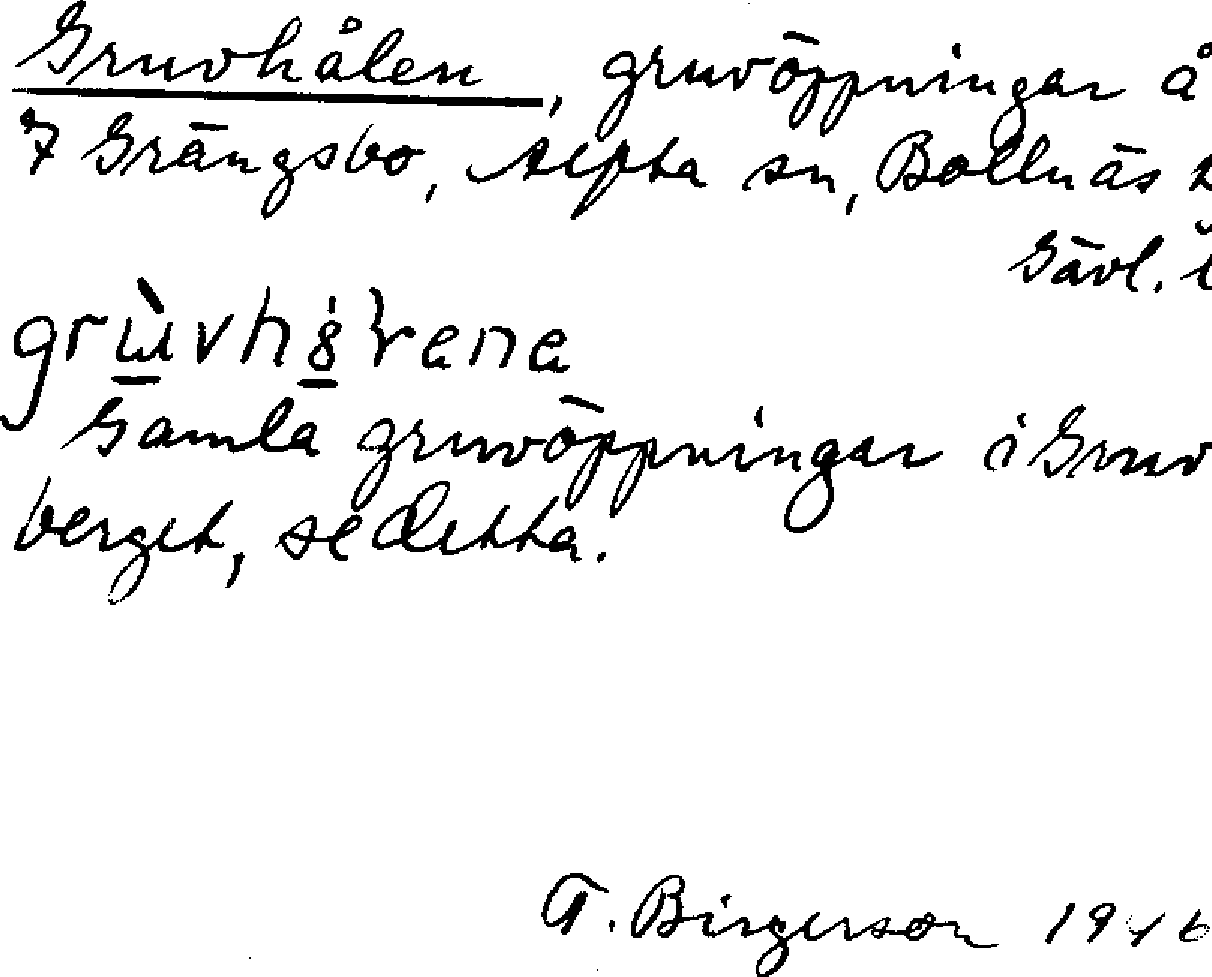 Gruvhålen, gruvöppningar å
7 Grängsbo, Alfta sn, Bollnäs
Gävl. l
grùvhålrena
Gamla gruvöppningar i Gruv
berget, se detta.
T. Birgerson 1946